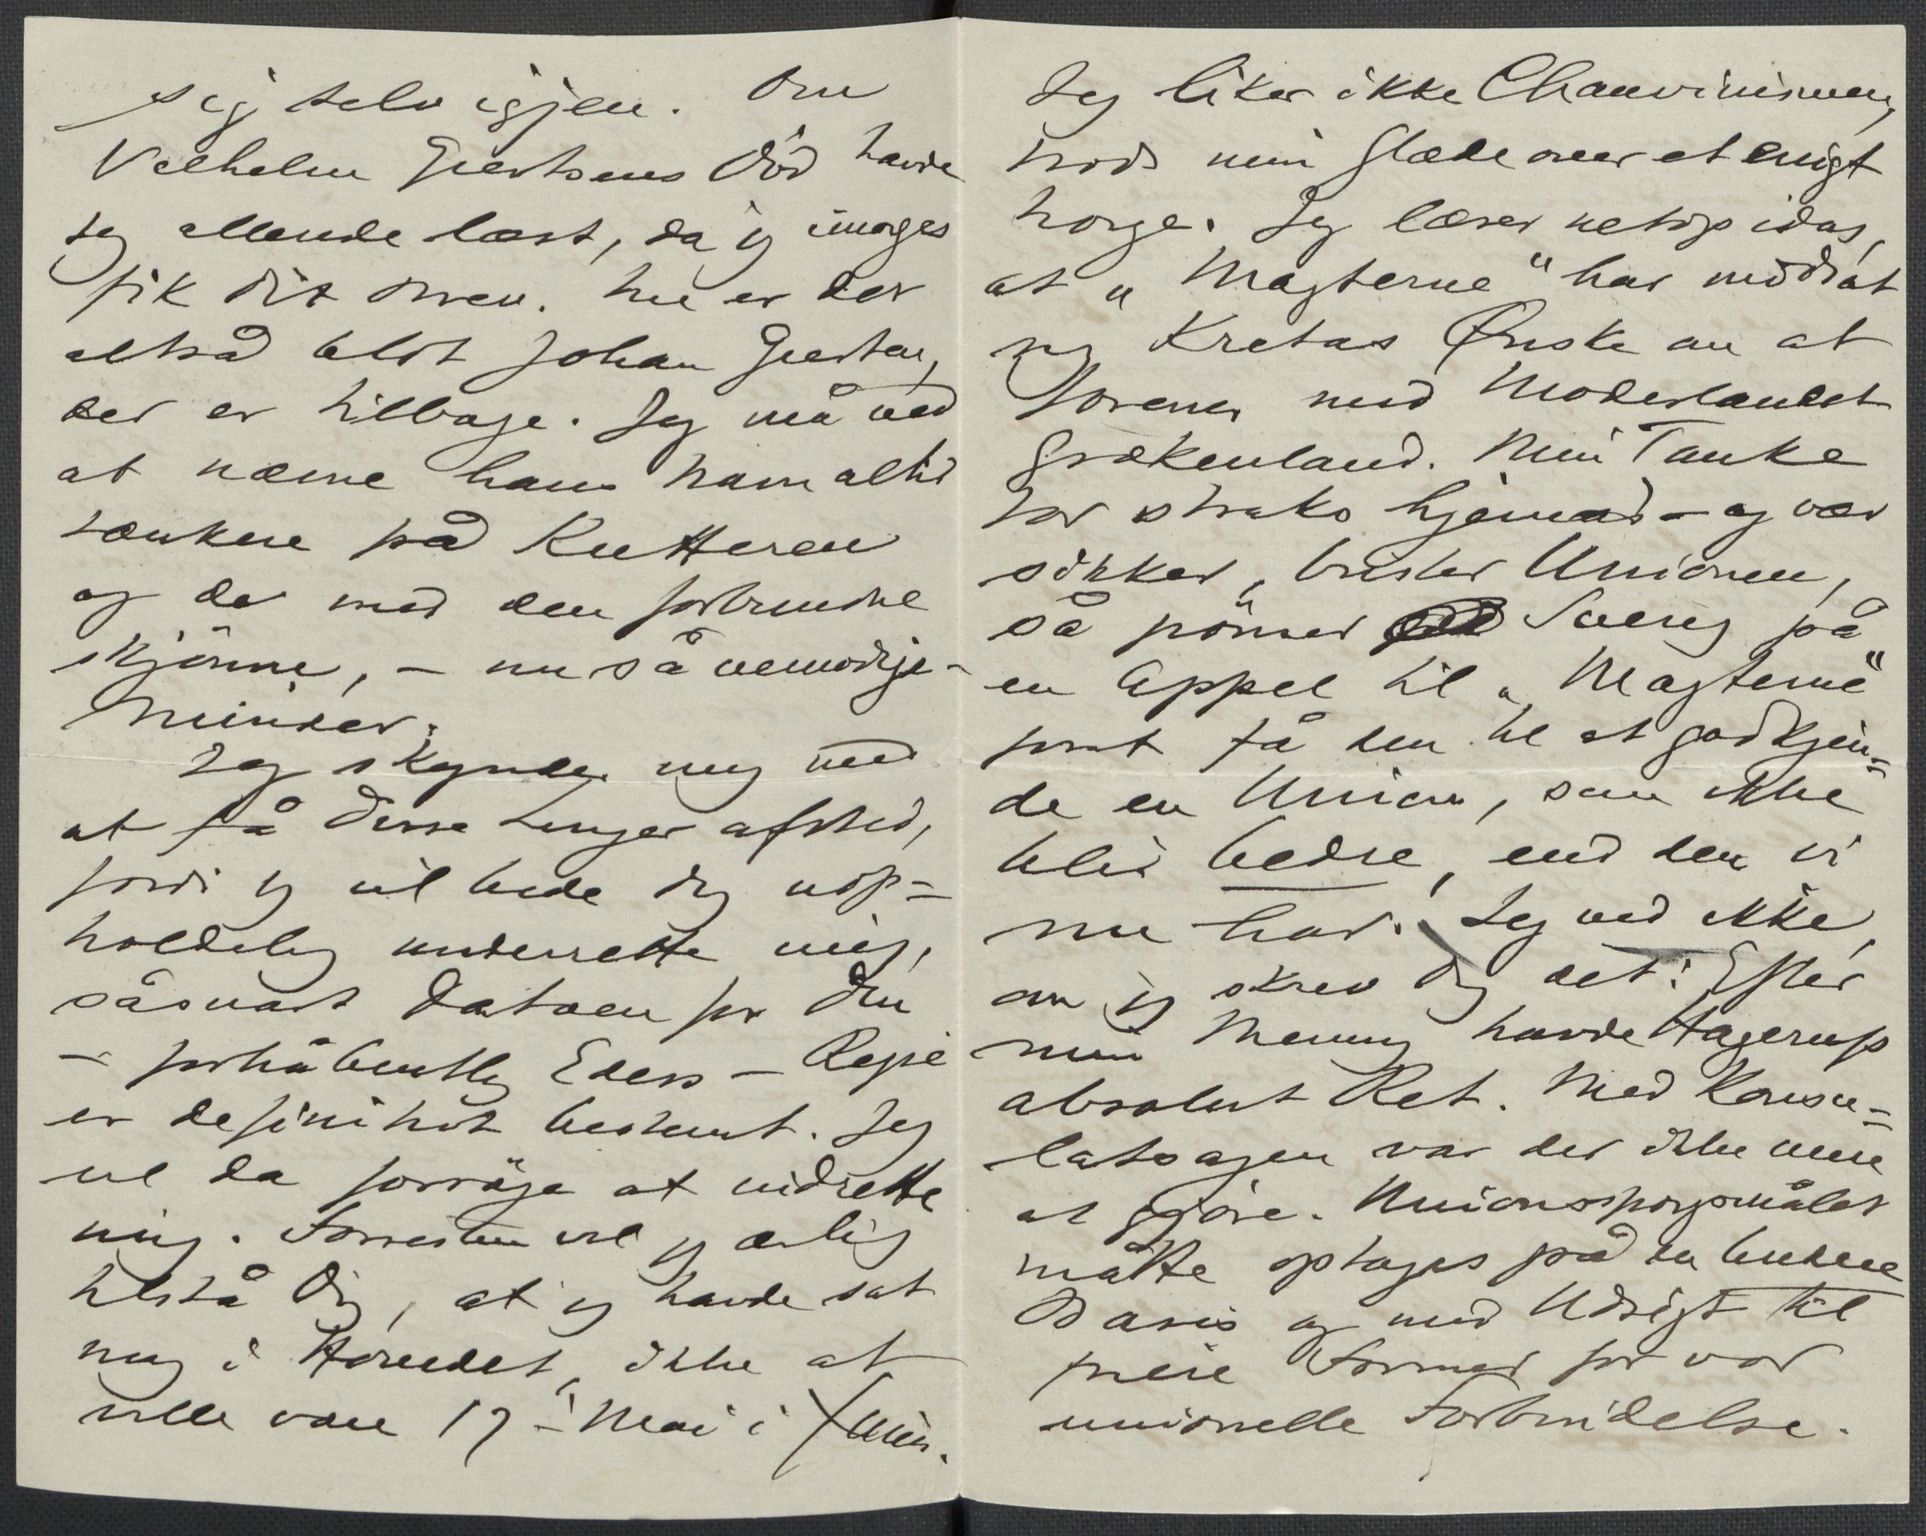 sig selv igjen. Om
Vilhelm Giertsens Död havde
jeg allerede læst, da jeg imorges
fik dit Brev. Nu er der
altså blot Johan Giertsen,
der er tilbage. Jeg må ved
at nævne hans Navn altid
tænke på Kutteren
og de med den forbundne
skjönne, – nu så vemodige
Minder.
Jeg skynder mig med
at få disse Linjer afsted,
fordi jeg vil bede dig uop=
holdelig underrette mig,
såsnart Datoen for Din
– forhåbentlig Eders – Rejse
er definitivt bestemt. Jeg
vil da forsöge at indrette
mig. Forresten vil jeg ærlig
tilstå Dig, at jeg havde sat
mig i Hovedet, ikke at
ville være 17 – Mai i
Jeg liker ikke Chauvinismen,
trods min Glæde over et enigt
Norge. Jeg læser netop idag,
at „Magterne" har modsat
sig Kretas Ønske om at
forenes med Moderlandet
Grækenland. Min Tanke
for straks hjemad – og vær
sikker, brister Unionen,
så pönser Sverig på
en Appel til „Magterne"
for at få dem til at godkjen=
de en Union, som ikke
blir bedre, end den vi
nu har. Jeg ved ikke,
om jeg skrev dig det: Efter
min Mening havde Hagerup
absolut Ret. Med Konsu=
latsagen var der ikke mere
at gjöre. Unionsspörgsmålet
måtte optages på en bredere
Basis og med Udsigt til
friere Former for vor
unionelle Forbindelse.